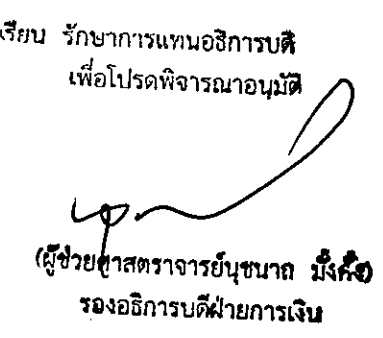 เรียน รักษาการแทนอธิการบดี
เพื่อโปรดพิจารณาอนุมัติ
(ผู้ช่วยศาสตราจารย์นุชนาถ มั่งคั่ง)
รองอธิการบดีฝ่ายการเงิน